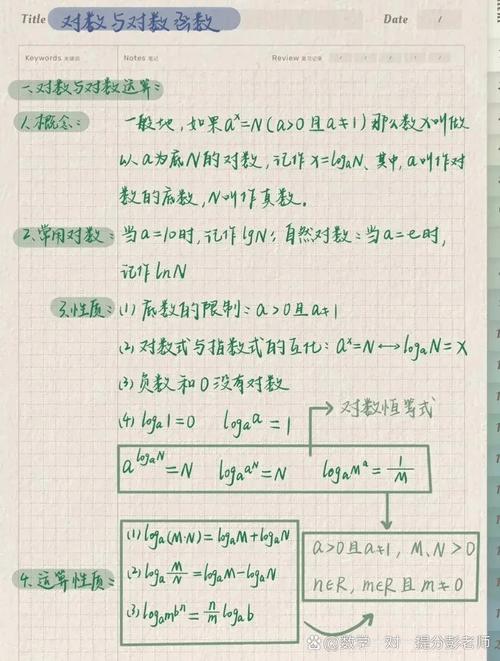 Title 对数与对数函数 Date /
Keywords 关键词 Notes 笔记 Review 复习记录
一、对数与对数运算:
1.概念: 一般地, 如果aˣ=N(a>0且a≠1)那么数x叫做
以a为底N的对数, 记作x=logₐN、其中, a叫作对
数的底数, N叫作真数.
2.常用对数: 当a=10时, 记作lgN; 自然对数: 当a=e时,
记作lnN
3.性质: (1) 底数的限制: a>0且a≠1
(2) 对数式与指数式的互化: aˣ=N↔logₐN=x
(3) 负数和0没有对数
(4) logₐ1=0 logₐa=1 → 对数恒等式
a^(logₐN)=N logₐa^N=N logₐMᵃ=1/M
4.运算性质:
(1) logₐ(M·N)=logₐM+logₐN
(2) logₐ M/N=logₐM-logₐN
(3) logₐmbⁿ=n/m logₐb
a>0且a≠1, M、N>0
n∈R, m∈R且m≠0
数学 对 提分彭老师